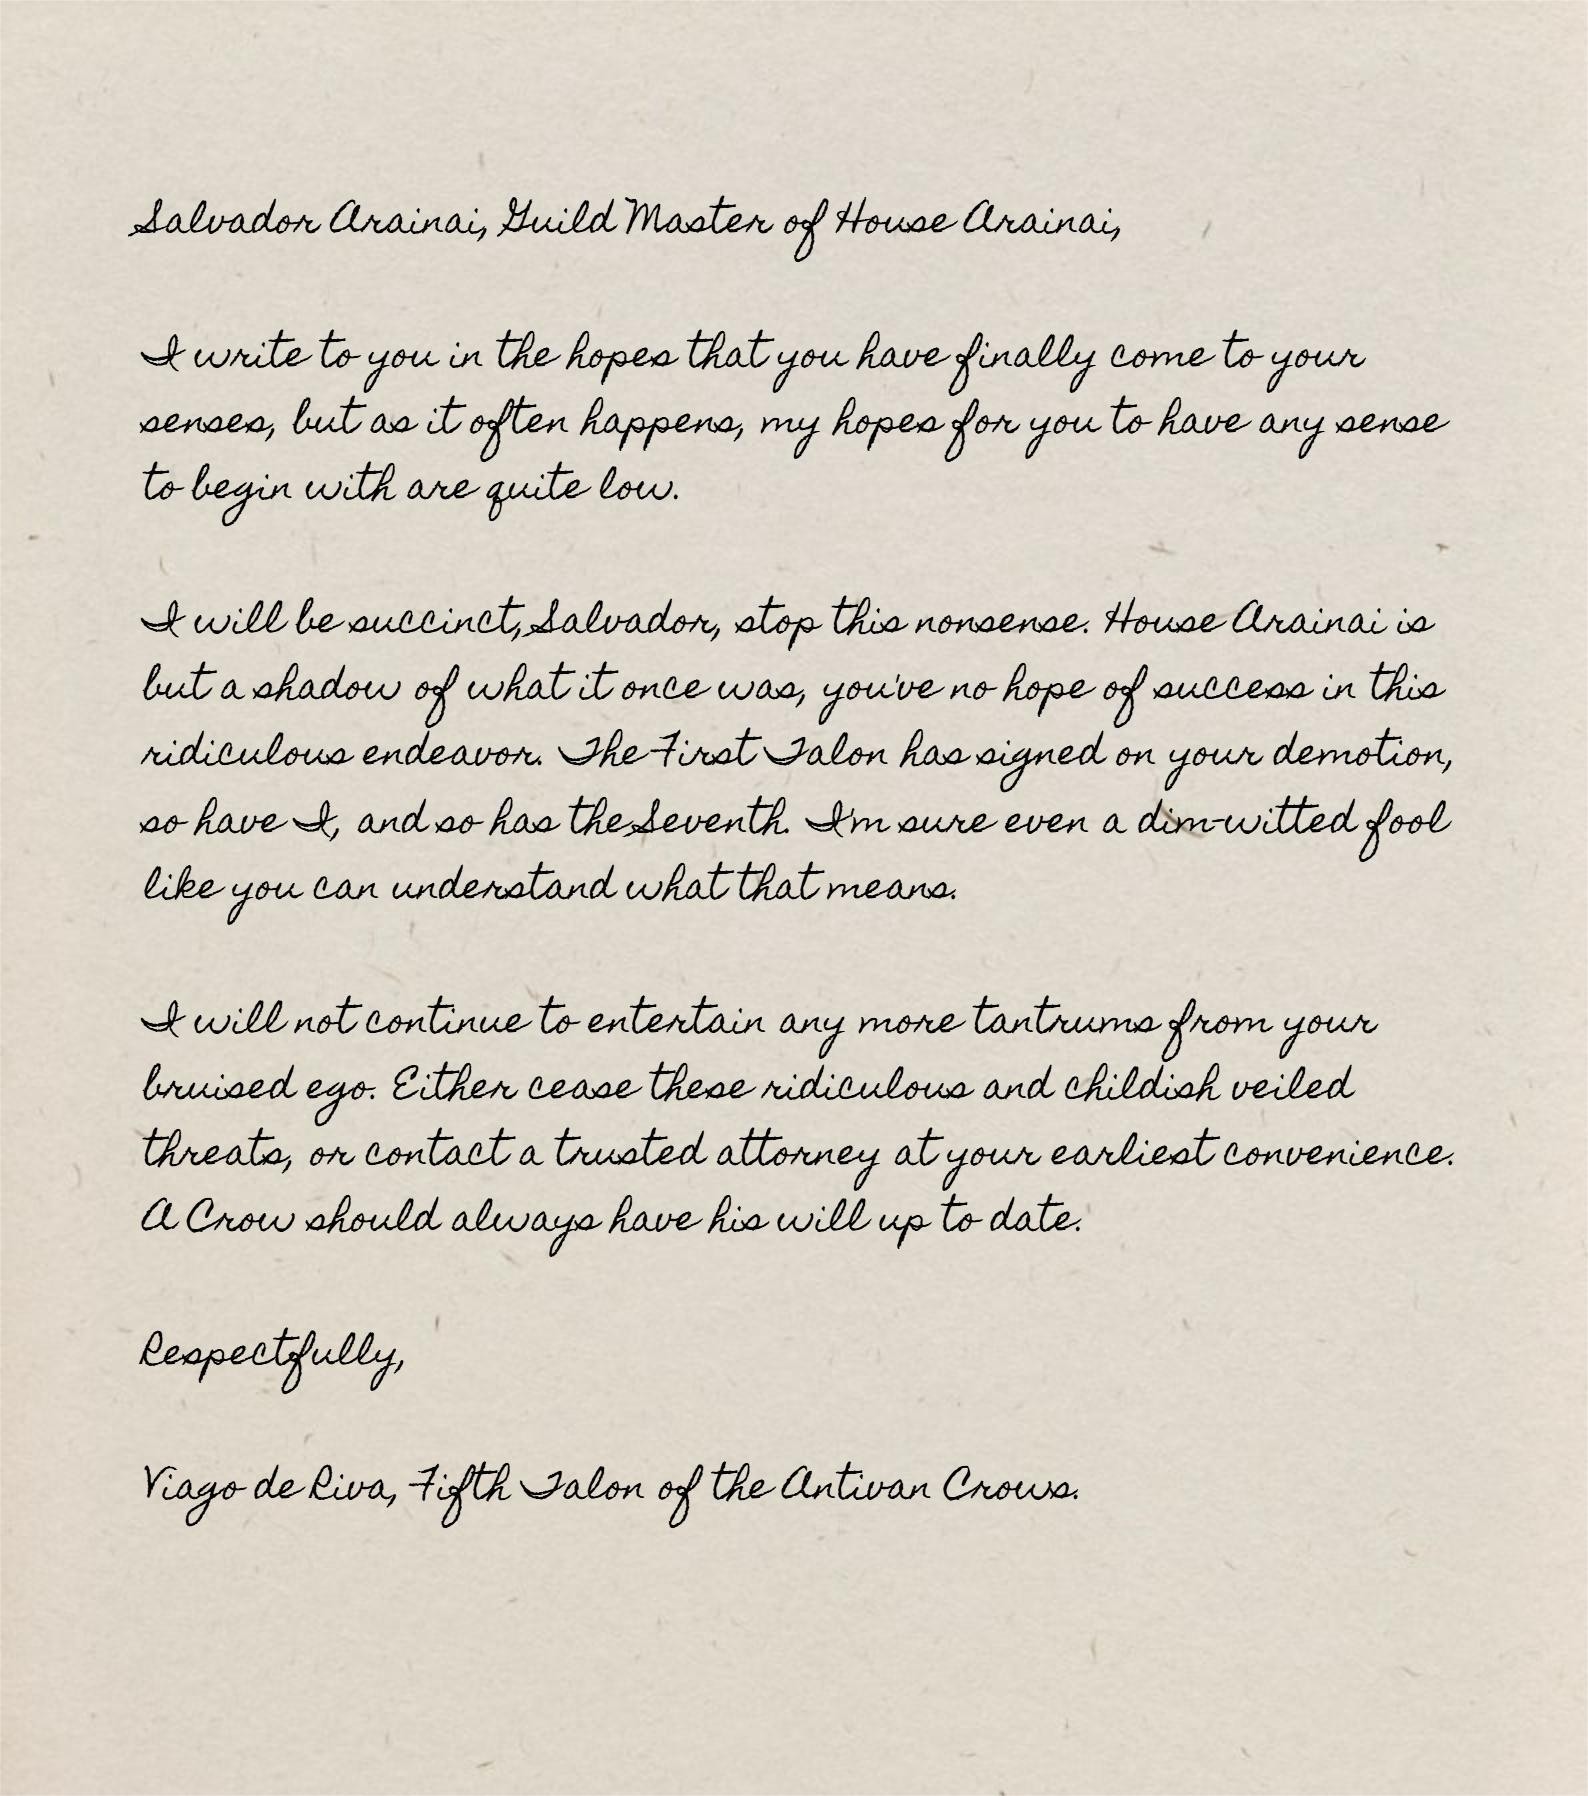 Salvador Arainai, Guild Master of House Arainai,
I write to you in the hopes that you have finally come to your
senses, but as it often happens, my hopes for you to have any sense
to begin with are quite low.
I will be succinct, Salvador, stop this nonsense. House Arainai is
but a shadow of what it once was, you've no hope of success in this
ridiculous endeavor. The First Talon has signed on your demotion,
so have I, and so has the Seventh. I'm sure even a dim-witted fool
like you can understand what that means.
I will not continue to entertain any more tantrums from your
bruised ego. Either cease these ridiculous and childish veiled
threats, or contact a trusted attorney at your earliest convenience.
A Crow should always have his will up to date.
Respectfully,
Viago de Riva, Fifth Talon of the Antivan Crows.